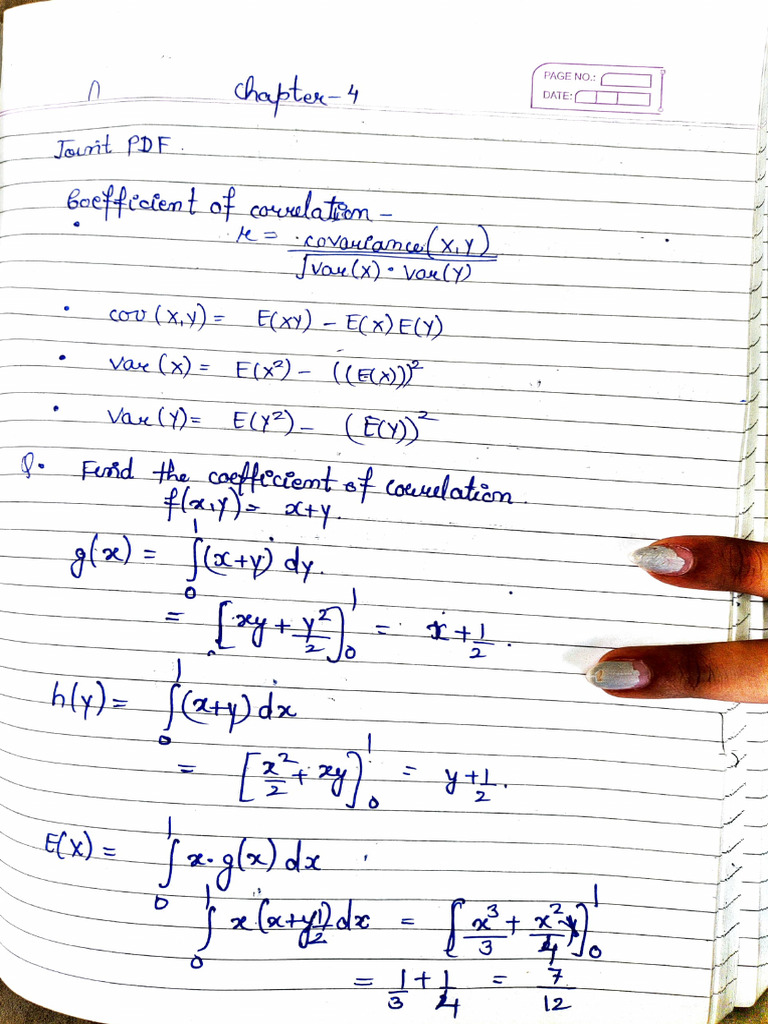 Chapter-4
PAGE NO.:
DATE:
Joint PDF.
Coefficient of correlation -
r = covariance(X,Y) / √var(X)·var(Y)
• cov(X,Y) = E(XY) - E(X)E(Y)
• var(X) = E(X²) - ((E(X)))²
• var(Y) = E(Y²) - (E(Y))²
Q. Find the coefficient of correlation.
f(x,y) = x+y.
g(x) = ∫₀¹ (x+y) dy.
= [xy + y²/2]₀¹ = x + 1/2.
h(y) = ∫₀¹ (x+y) dx
= [x²/2 + xy]₀¹ = y + 1/2.
E(X) = ∫₀¹ x·g(x) dx
∫₀¹ x(x+1/2) dx = [x³/3 + x²/4]₀¹
= 1/3 + 1/4 = 7/12